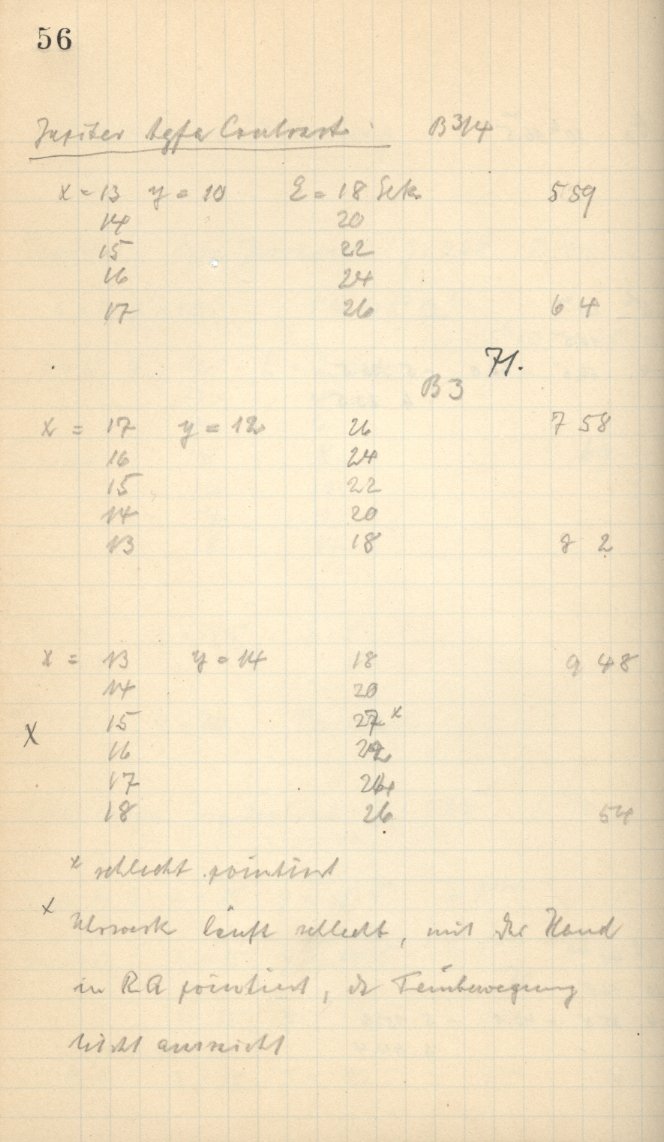 56
Jupiter Agfa Contrast. B 3/4
x = 13 y = 10 E = 18 Sek. 5 59
14 20
15 22
16 24
17 26 6 4
71.
B 3
x = 17 y = 12 26 7 58
16 24
15 22
14 20
13 18 8 2
x = 13 y = 14 18 9 48
14 20
x 15 27 x
16 22
17 24
18 26 54
x schlecht pointiert
x Uhrwerk läuft schlecht, mit der Hand
in RA pointiert, da Feinbewegung
nicht ausreicht